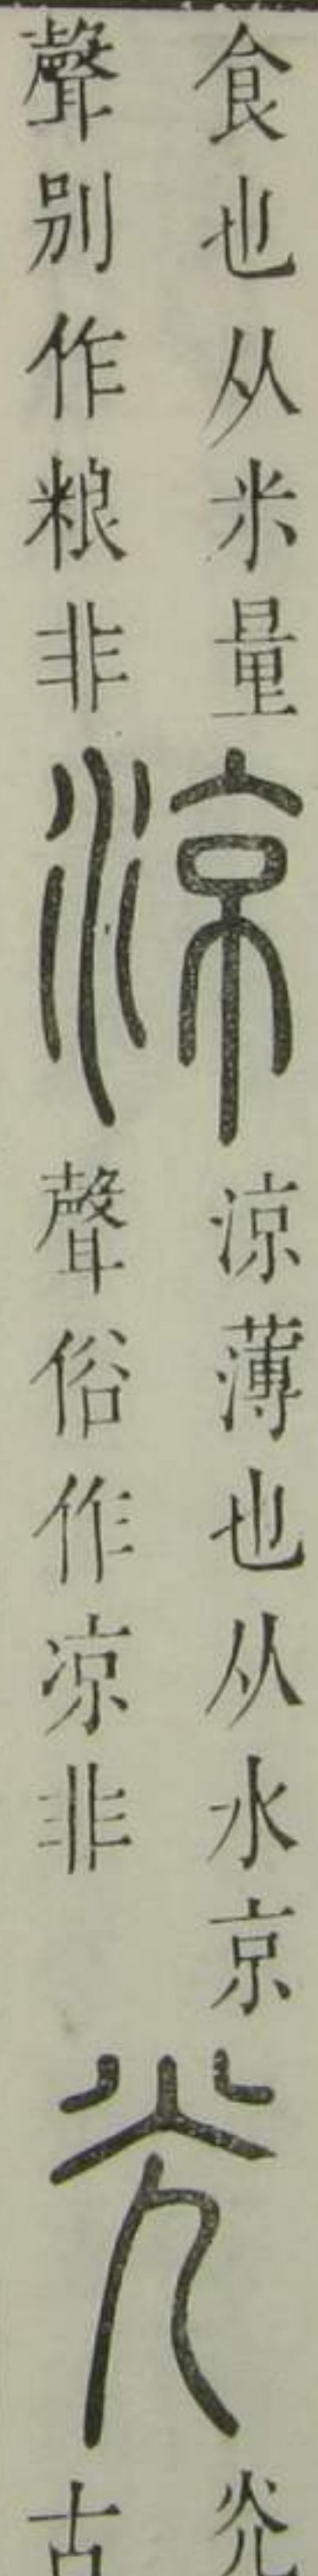 食也从米量
聲別作粮非
涼
涼薄也从水京
聲俗作凉非
光
灮
古